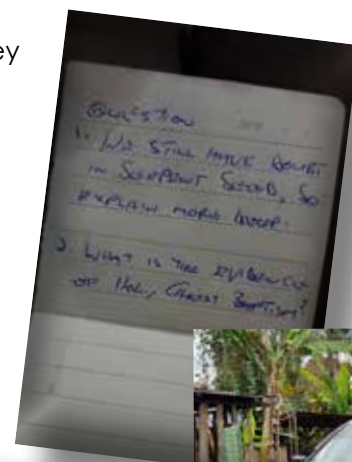 ey
Question
1. WE STILL HAVE DOUBT
IN SERPENT SEED, SO
EXPLAIN MORE DEEPER.
2. WHAT IS THE EVIDENCE
OF HOLY GHOST BAPTISM?